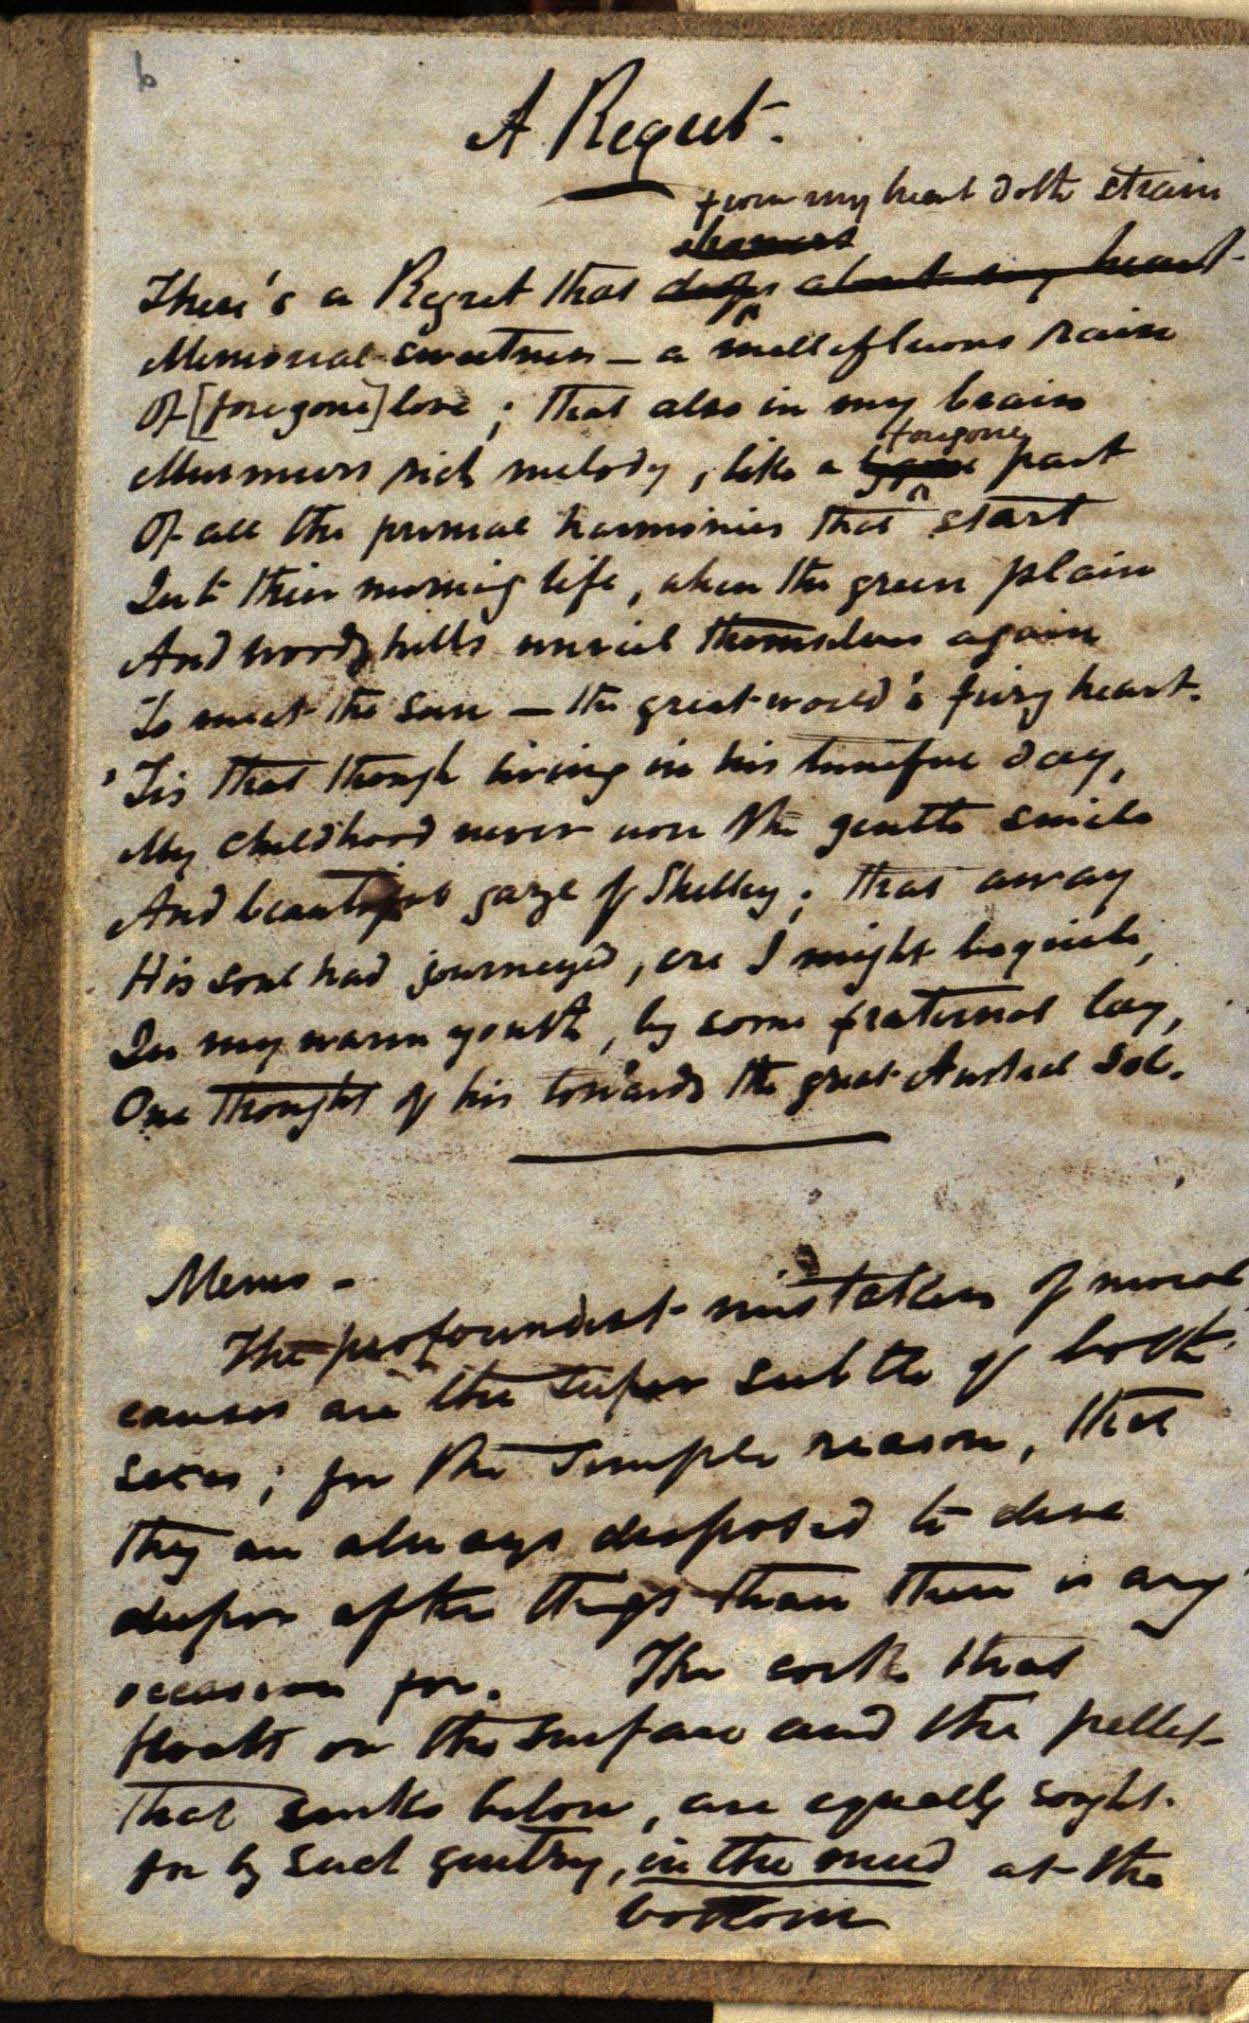 6
A Regret.
from my heart doth strain
There's a Regret that about my heart
Memorial sweetness – a mellifluous rain
Of [foregone] love; that also in my brain
foregone
Murmurs rich melody, like a part
Of all the primal harmonies that start
Into their morning life, when the green plain
And woody hills unveil themselves again
To meet the Sun – the great world's fiery heart.
'Tis that though living in his tuneful day,
My childhood never won the gentle smile
And beautiful gaze of Shelley; that away
His soul had journeyed, ere I might beguile,
In my warm youth, by some fraternal lay,
One thought of his towards this great Austral Isle.
Memo –
The profoundest mistakers of moral
causes are the super subtle of both
sexes; for the simple reason, that
they are always disposed to dive
deeper after things than there is any
occasion for. The cork that
floats on the surface and the pellet
that sinks below, are equally sought
for by such gentry, in the mud at the
bottom